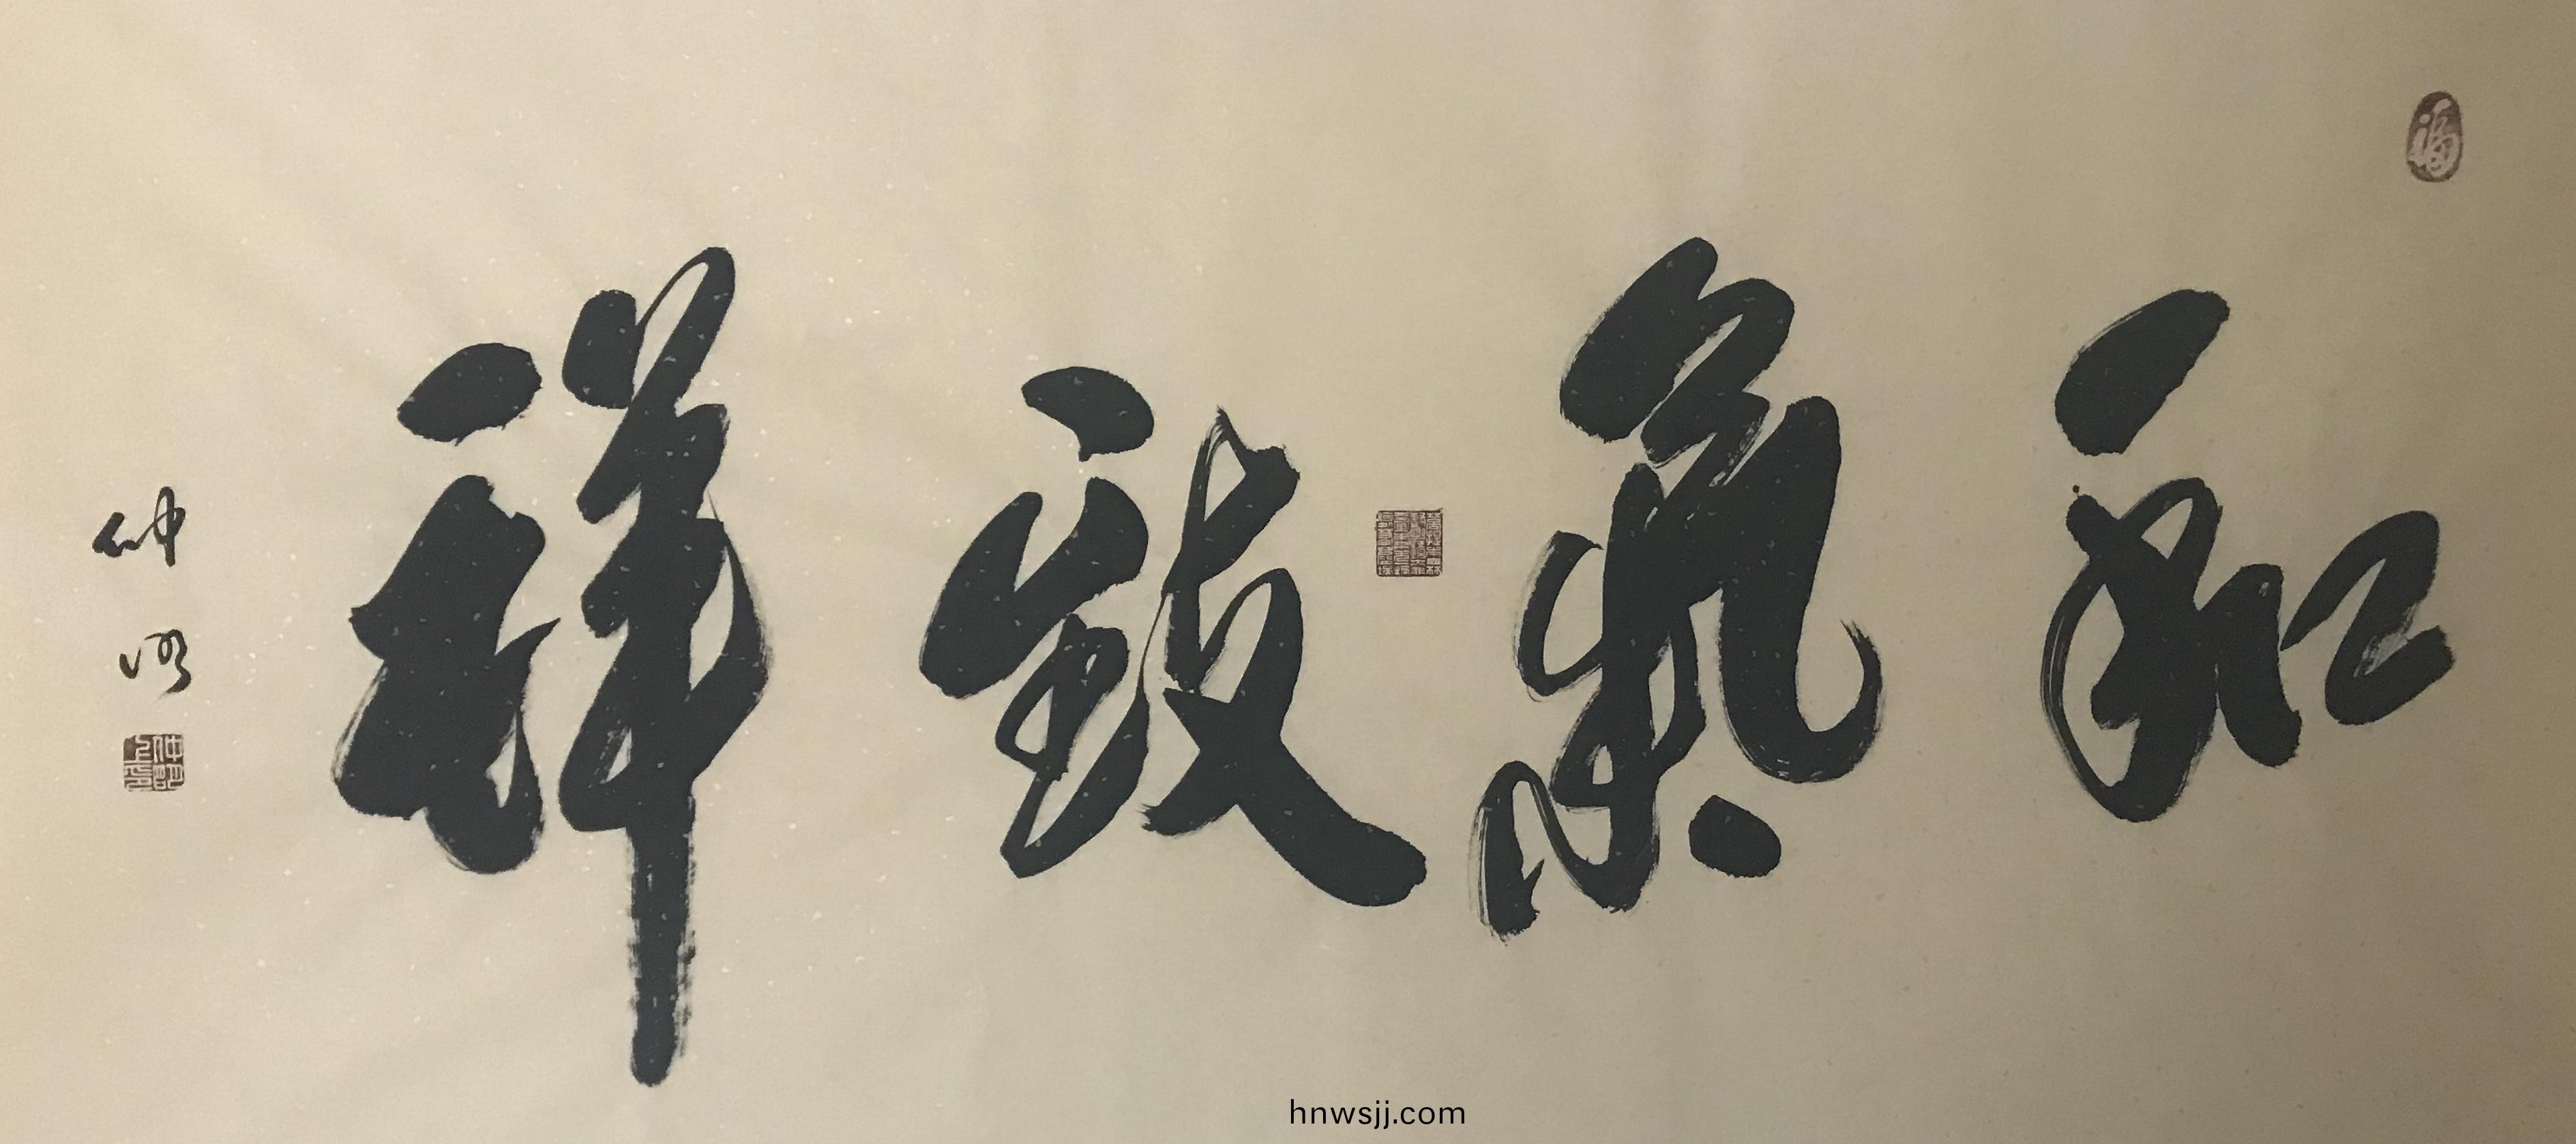 和氣致祥
仲明
福
仲明
之印
hnwsjj.com